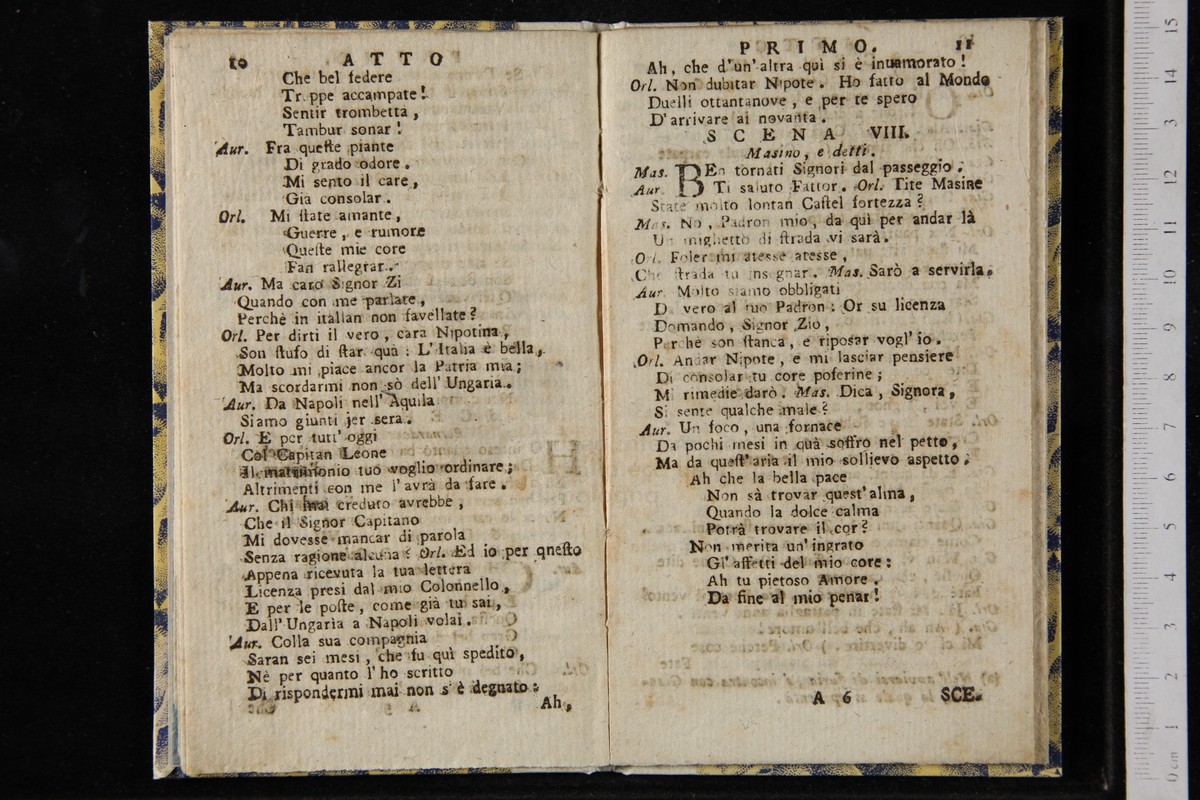 10 ATTO
Che bel federe
Truppe accampate!
Sentir trombetta,
Tambur sonar!
Aur. Fra queste piante
Di grado odore.
Mi sento il care,
Gia consolar.
Orl. Mi state amante,
Guerre, e rumore
Queste mie core
Fan rallegrar.
Aur. Ma caro Signor Zi
Quando con me parlate,
Perchè in italian non favellate?
Orl. Per dirti il vero, cara Nipotina,
Son stufo di star quà: L'Italia è bella,
Molto mi piace ancor la Patria mia;
Ma scordarmi non sò dell'Ungaria.
Aur. Da Napoli nell'Aquila
Siamo giunti jer sera.
Orl. E per tutt'oggi
Col Capitan Leone
Il matrimonio tuo voglio ordinare;
Altrimenti con me l'avrà da fare.
Aur. Chi mai creduto avrebbe,
Che il Signor Capitano
Mi dovesse mancar di parola
Senza ragione alcuna? Orl. Ed io per qnesto
Appena ricevuta la tua lettera
Licenza presi dal mio Colonnello,
E per le poste, come già tu sai,
Dall'Ungaria a Napoli volai.
Aur. Colla sua compagnia
Saran sei mesi, che fu quì spedito,
Nè per quanto l'ho scritto
Di rispondermi mai non s'è degnato:
Ah,
PRIMO. 11
Ah, che d'un'altra quì si è innamorato!
Orl. Non dubitar Nipote. Ho fatto al Mondo
Duelli ottantanove, e per te spero
D'arrivare ai novanta.
SCENA VIII.
Masino, e detti.
Mas. BEn tornati Signori dal passeggio.
Aur. Ti saluto Fattor. Orl. Tite Masine
State molto lontan Castel fortezza?
Mas. No, Padron mio, da quì per andar là
Un miglietto di strada vi sarà.
Orl. Foler mi atesse atesse,
Che strada tu insegnar. Mas. Sarò a servirla.
Aur. Molto siamo obbligati
Da vero al tuo Padron: Or su licenza
Domando, Signor Zio,
Perchè son stanca, e riposar vogl'io.
Orl. Andar Nipote, e mi lasciar pensiere
Di consolar tu core poferine;
Mi rimedie darò. Mas. Dica, Signora,
Si sente qualche male?
Aur. Un foco, una fornace
Da pochi mesi in quà soffro nel petto,
Ma da quest'aria il mio sollievo aspetto.
Ah che la bella pace
Non sà trovar quest'alma,
Quando la dolce calma
Potrà trovare il cor?
Non merita un'ingrato
Gl'affetti del mio core:
Ah tu pietoso Amore.
Da fine al mio penar!
A 6 SCE.